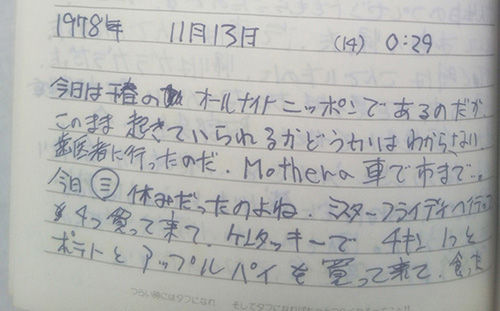 1978年 11月13日 (14) 0:29
今日は千春の オールナイトニッポンであるのだが
このまま 起きていられるかどうかはわからない。
歯医者に行ったのだ。Motherの車で市まで…。
今日 三 休みだったのよね。ミスターフライデイ
4つ買って来て。ケンタッキーで チキン 1つと
ポテトとアップルパイを買って来て。食った
つらい時にはタフになれ そして